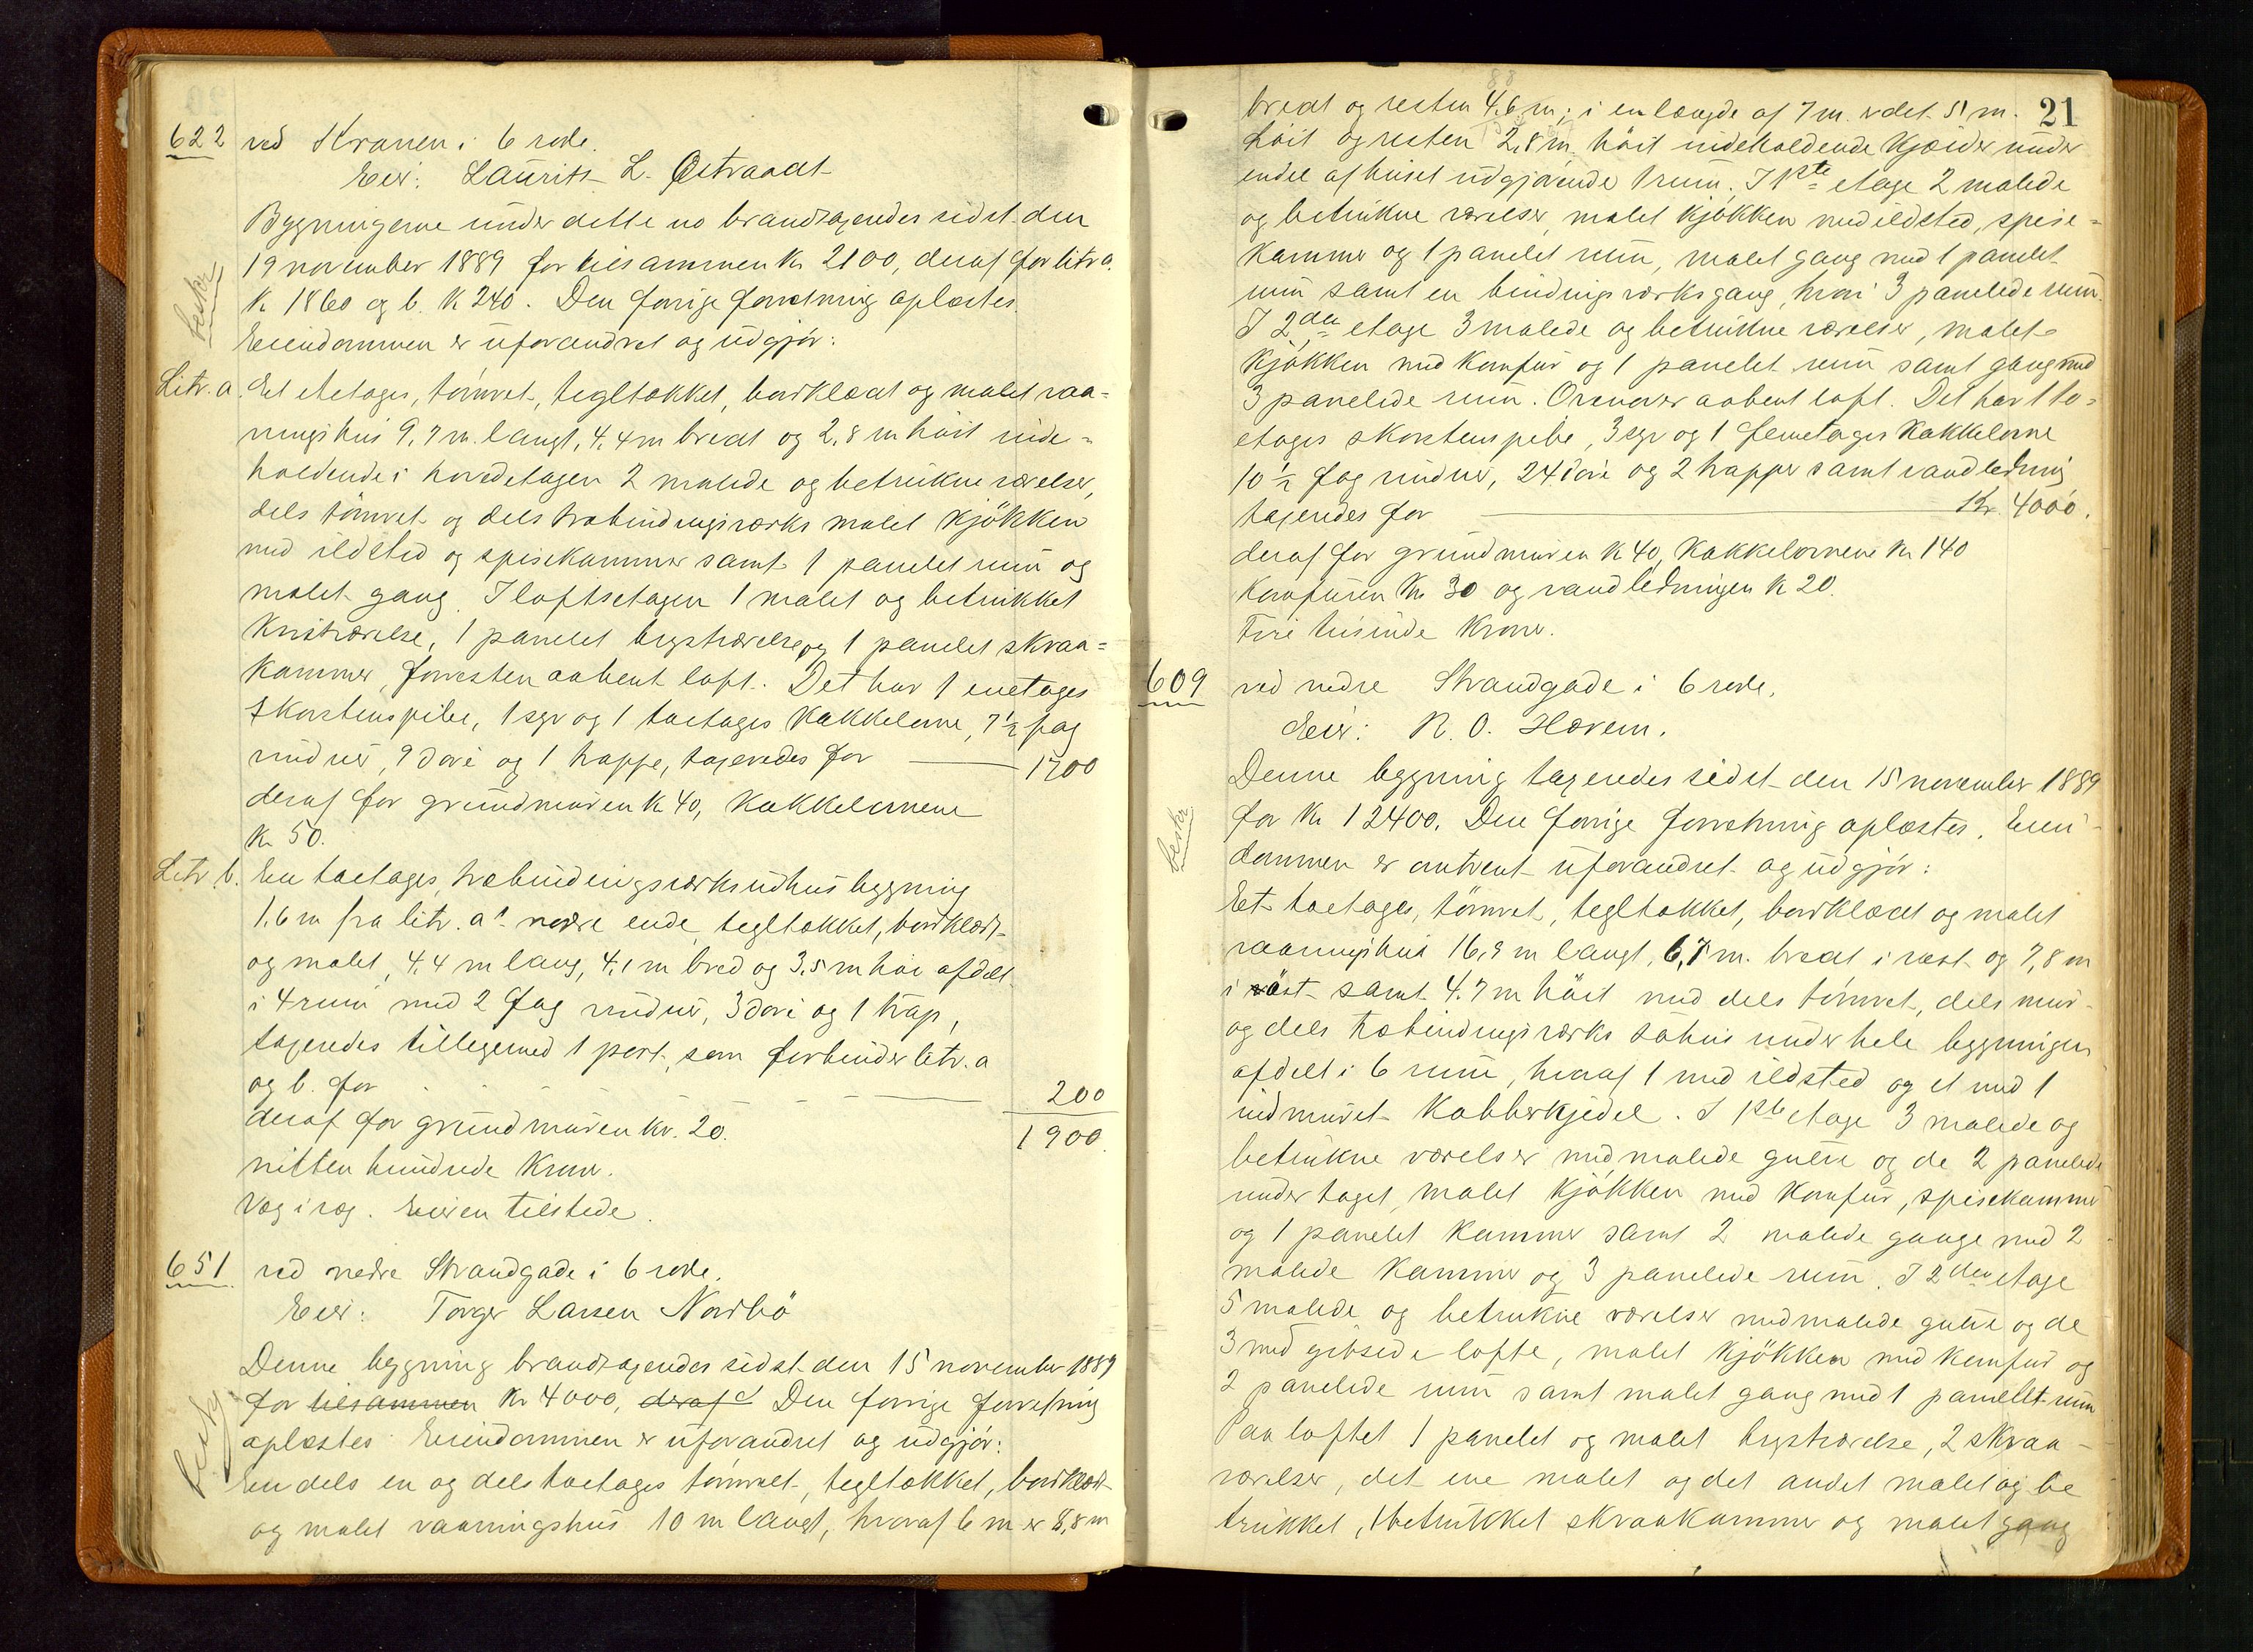 622 ved Kranen i 6 rode.
Eier: Laurits L. Østraadt
Bygningerne under dette no brandtaxeredes sidst den
19 november 1889 for tilsammen Kr 2100, deraf for litr a.
Kr 1860 og b. K 240. Den forrige forretning oplæstes.
Eiendommen er uforandret og udgjør:
beskr
Litr. a. Et etetages, tømret, tegltækket, bordklædt og malet vaa=
ningshus 9,7 m. langt, 4,4 m bredt og 2,8 m høit inde=
holdende i hovedetagen 2 malede og betrukne værelser,
dels tømret og dels træbindingsværks malet kjøkken
med ildsted og spisekammer samt 1 panelet rum og
malet gang. I loftsetagen 1 malet og betrukket
kvistværelse, 1 panelet brystværelse og 1 panelet skraa=
kammer, forresten aabent loft. Det har 1 enetages
skorstenspibe, 1 syv og 1 toetages kakkelovne, 7½ fag
vinduer, 9 døre og 1 trappe, taxeredes for — 1700
deraf for grundmuren K 40, kakkelovnene
Kr 50.
Litr. b. En toetages, træbindingsværks udhusbygning
1,6 m fra litr. a's nedre ende, tegltækket, bordklædt
og malet, 4,4 m lang, 4,1 m bred og 3,5 m høi afdelt
i 4 rum med 2 fag vinduer, 3 døre og 1 trap,
taxeredes tilligemed 1 port, som forbinder litr. a
og b. for — 200
deraf for grundmuren kr. 20. 1900
nitten hundrede kroner.
Væg i væg. Eieren tilstede.
651 ved nedre Strandgade i 6 rode.
Eier: Torger Larsen Nordbö
Denne bygning brandtaxeredes sidst den 15 november 1889
for tilsammen Kr 4000, deraf Den forrige forretning
oplæstes. Eiendommen er uforandret og udgjør:
beskr
En dels en og dels toetages tømret, tegltækket, bordklædt
og malet vaaningshus 10 m langt, hvoraf 6 m er 8,8 m
21
bredt og resten 4,6 m; i en længde af 7 m. er det 5 m.
høit og resten 2,8 m høit indeholdende kjælder under
endel af huset udgjørende 1 rum. I 1ste etage 2 malede
og betrukne værelser, malet kjøkken med ildsted, spise=
kammer og 1 panelet rum, malet gang med 1 panelet
rum samt en bindingsværks gang, hvori 3 panelede rum.
I 2den etage 3 malede og betrukne værelser, malet
kjøkken med komfur og 1 panelet rum samt gang med
3 panelede rum. Ovenover aabent loft. Det har 1 to=
etages skorstenspibe, 3 syv og 1 femetages kakkelovne
10½ fag vinduer, 24 døre og 2 trapper samt vandledning
taxeredes for — Kr 4000.
deraf for grundmuren K 40, kakkelovnene Kr 140
komfuren Kr 30 og vandledningen K 20.
Fire tusinde kroner.
609 ved nedre Strandgade i 6 rode.
Eier: R. O. Hovem.
Denne bygning taxeredes sidst den 15 november 1889
for Kr 12400. Den forrige forretning oplæstes. Eien=
beskr
dommen er omtrent uforandret og udgjør:
Et toetages, tømret, tegltækket, bordklædt og malet
vaaningshus 16,9 m langt, 6,7 m. bredt i vest og 7,8 m
i øst samt 4,7 m høit med dels tømret, dels mur-
og dels træbindingsværks søhus under hele bygningen
afdelt i 6 rum, hvoraf 1 med ildsted og et med 1
indmuret kobberkjedel. I 1ste etage 3 malede og
betrukne værelser med malede gulve og de 2 panelede
under taget, malet kjøkken med komfur, spisekammer
og 1 panelet kammer samt 2 malede gange med 2
malede kammer og 3 panelede rum. I 2den etage
5 malede og betrukne værelser med malede gulve og de
3 med gibsede lofte, malet kjøkken med komfur og
2 panelede rum samt malet gang med 1 panellet rum
Paa loftet 1 panelet og malet brystværelse, 2 skraa-
værelser, det ene malet og det andet malet og be
trukket, 1 betrukket skraakammer og malet gang